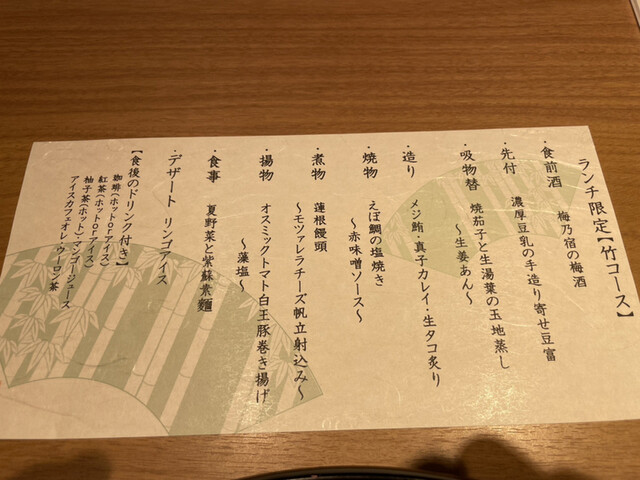 ランチ限定【竹コース】
・食前酒 梅乃宿の梅酒
・先付 濃厚豆乳の手造り寄せ豆富
・吸物替 焼茄子と生湯葉の玉地蒸し
～生姜あん～
・造り メジ鮪・真子カレイ・生タコ炙り
・焼物 えぼ鯛の塩焼き
～赤味噌ソース～
・煮物 蓮根饅頭
～モツァレラチーズ帆立射込み～
・揚物 オスミックトマト白王豚巻き揚げ
～藻塩～
・食事 夏野菜と紫蘇素麺
・デザート リンゴアイス
【食後のドリンク付き】
珈琲(ホットorアイス)
紅茶(ホットorアイス)
柚子茶(ホット)マンゴージュース
アイスカフェオレ・ウーロン茶